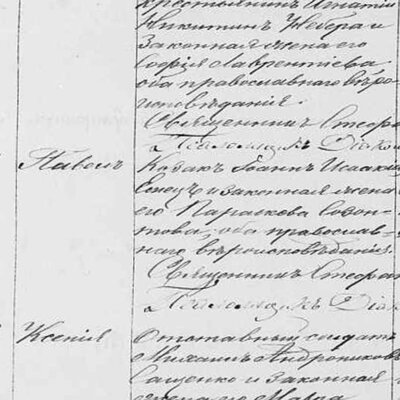 крестьянинъ Игнатій
Никитинъ Жебра и
законная жена его
Софія Лаврентіева,
оба православнаго вѣро-
исповѣданія.
Священникъ Стефан
Псаломщикъ Діако
Павелъ
Козакъ Іоаннъ Исаакі
и законная жена
его Параскева
това, оба православ-
наго вѣроисповѣданія.
Священникъ Стефан
Псаломщикъ Діак
Ксенія
Отставный солдатъ
Михаилъ Андрониковъ
Сащенко и законная
жена его Марѳа